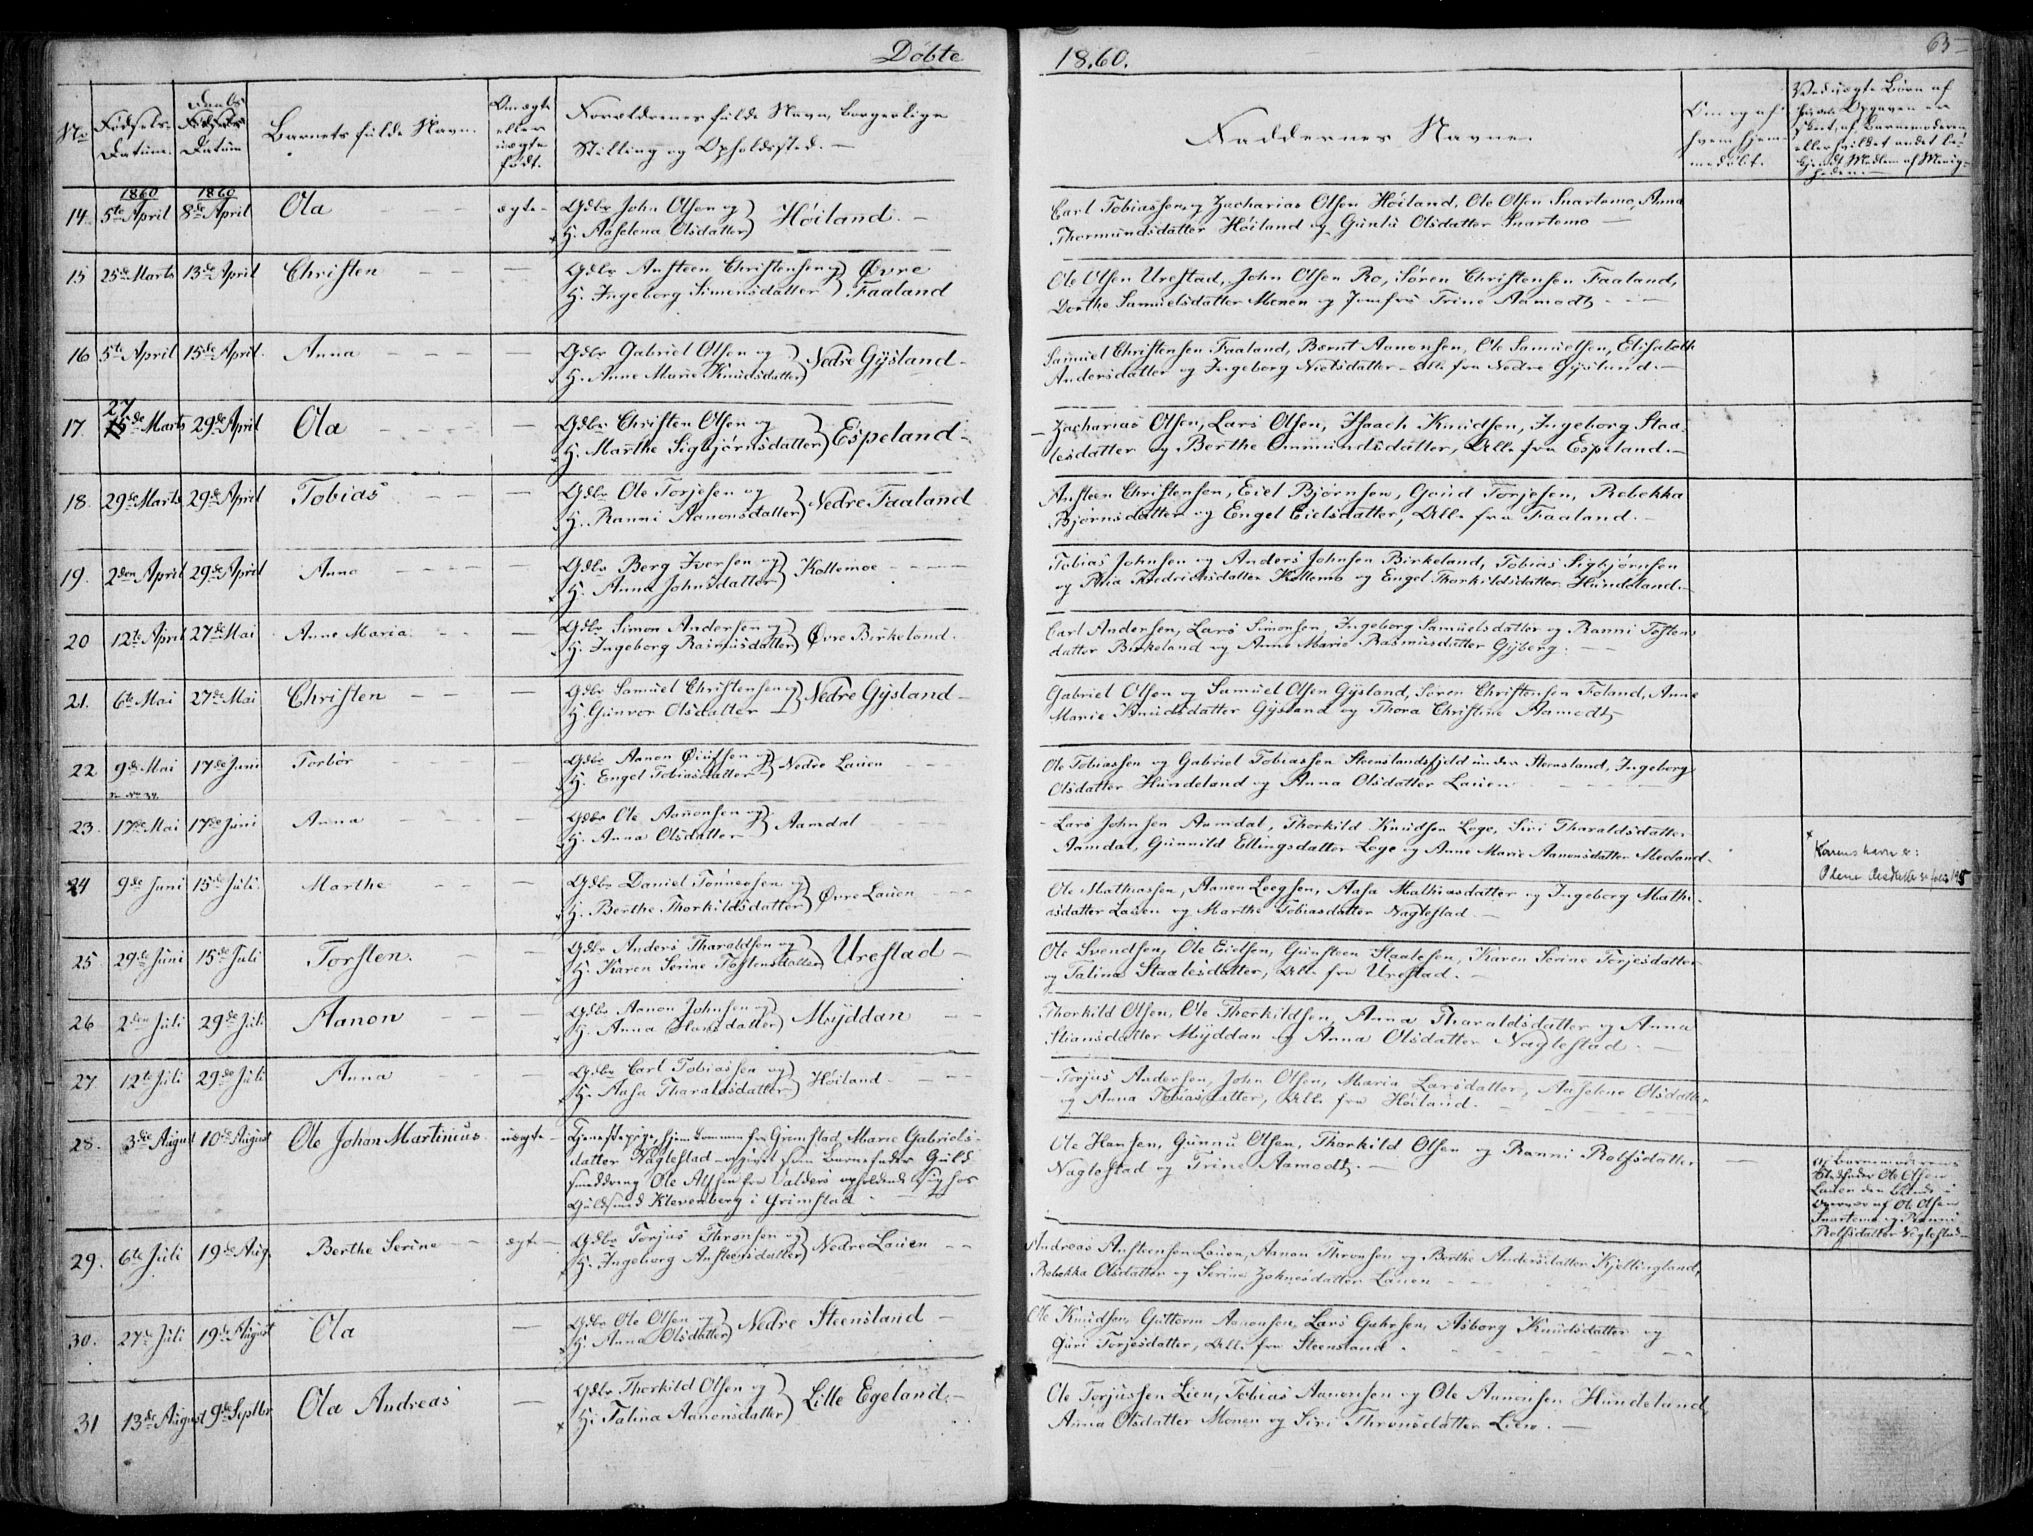 Döbte
1860.
63
No
Fødsels-
Datum.
Daabs
Datum
Barnets fulde Navn.
Om ægte
eller
uægte
født.
Forældrenes fulde Navn, borgerlige
Stilling og Opholdssted. —
Faddernes Navne.
Om og af
hvem hjem-
medøbt.
Ved uægte Børn af
14. 1860 5te April 1860 8de April Ola ægte- Gdbr John Olsen og
H. Aaselena Olsdatter) Høiland. —
Carl Tobiassen og Zacharias Olsen Høiland, Ole Olsen Snartemo, Anna
Thormundsdatter Høiland og Guntu Olsdatter Snartemo —
15 25de Marts 13de April Christen — Gdbr Ansteen Christensen og) Øvre
H. Ingeborg Simensdatter) Faaland
Ole Olsen Urestad, John Olsen Ro, Søren Christensen Faaland,
Dorthe Samuelsdatter Monen og Jomfru Trine Aamodt - - -
16 5te April 15de April. Anna — Gdbr Gabriel Olsen og
H. Anne Marie Knudsdatter) Nedre Gysland -
Samuel Christensen Faaland, Bernt Aanonsen, Ole Samuelsen, Elisabeth
Andersdatter og Ingeborg Nielsdatter - Alle fra Nedre Gysland. —
17. 27 de Marts 29de April Ola — Gdbr Christen Olsen og
H. Marthe Sigbjørnsdatter) Espeland -
Zacharias Olsen, Lars Olsen, Isaach Knudsen, Ingeborg Staa-
lesdatter og Berthe Ommundsdatter, Alle fra Espeland. —
18. 29de Marts 29de April Tobias — Gdbr Ole Torjesen og
H. Ranni Aanonsdatter) Nedre Faaland
Ansteen Christensen, Eiel Bjørnsen, Goud Torjesen, Rebekka
Bjørnsdatter og Engel Eielsdatter, Alle fra Faaland. —
19. 2den April 29de April Anne — Gdbr Berg Iversen og
H. Anna Johnsdatter) Kottemoe - - - -
Tobias Johnsen og Anders Johnsen Birkeland, Tobias Sigbjørnsen
og Fredrichsdatter Kottemo og Engel Thorkildsdatter Hundeland. —
20 12te April 27de Mai Anne Maria — Gdbr Simon Andersen og
H. Ingeborg Rasmusdatter) Øvre Birkeland.
Carl Andersen, Lars Simonsen, Ingeborg Samuelsdatter og Ranni Tostens
datter Birkeland og Anne Marie Rasmusdatter Gyberg. - —
21. 6te Mai 27de Mai Christen — Gdbr Samuel Christensen og
H. Gunvor Olsdatter —) Nedre Gysland —
Gabriel Olsen og Samuel Olsen Gysland, Søren Christensen Foland, Anne
Marie Knudsdatter Gysland og Thora Christine Aamodt
22 9de Mai 17de Juni Torbør — Gdbr Aanon Øiufsen og
H. Engel Tobiasdatter) Nedre Lauen
Ole Tobiassen og Gabriel Tobiassen Steenslandsfjeld under Steensland, Ingeborg
Olsdatter Hundeland og Anna Olsdatter Lauen
23. 17de Mai 17de Juni Anna — Gdbr Ole Aanonsen og
H. Anna Olsdatter) Aamdal
Lars Johnsen Aamdal, Thorkild Knudsen Loge, Siri Tharaldsdatter
Aamdal, Gunnild Ellingsdatter Loge og Anne Marie Aanonsdatter Meeland.
24 9de Juni 15de Juli. Marthe — Gdbr Daniel Tønnessen og
H. Berthe Thorkildsdatter) Øvre Lauen
Ole Mathiassen, Aanen Leegsen, Aasa Mathiasdatter og Ingeborg Mathi-
asdatter Lauen og Marthe Tobiasdatter Naglestad. —
25 29de Juni 15de Juli Torsten. — Gdbr Anders Tharaldsen og
H. Karen Serine Tostensdatter) Urestad —
Ole Svendsen, Ole Eielsen, Gunsteen Staalesen, Karen Serine Torjesdatter
og Talina Staalesdatter, Alle fra Urestad. -
26 2den Juli 29de Juli Aanon — Gdbr Aanon Johnsen og
H. Anna Hansdatter) Myddan
Thorkild Olsen, Ole Thorkildsen, Anna Tharaldsdatter og Anna
Stiansdatter Myddan og Anna Olsdatter Naglestad. —
27. 12te Juli 29de Juli Anna — Gdbr Carl Tobiassen og
H. Aasa Tharaldsdatter) Høiland.
Torjus Andersen, John Olsen, Maria Larsdatter, Aaselene Olsdatter
og Anna Tobiasdatter, Alle fra Høiland.
28. 3die August 10de August Ole Johan Martinius uægte - Tjenestepige, hjemkommen fra Grimstad, Marie Gabriels-
datter Naglestad - opgivet som Barnefader Guld-
smeddreng Ole Alfsen fra Valders opholdende sig hos
Guldsmed Klevenberg i Grimstad.
Ole Hansen, Gunnu Olsen, Thorkild Olsen og Ranni Rolfsdatter
Naglestad og Trine Aamodt. —
af Barnemoderens
Stedfader Ole Olsen
Lauen
Nærvær af Ole Olsen
Snartemo og Ranni
Rolfsdatter Naglestad
29. 6te Juli 19de Aug. Berthe Serine ægte — Gdbr Torjus Thronsen og
H. Ingeborg Ansteensdatter) Nedre Lauen
Andreas Ansteensen Lauen, Aanon Thronsen og Berthe Andersdatter Kjellingland,
Rebekka Olsdatter og Serine Johnesdatter Lauen
30. 27de Juli 19de August Ola — Gdbr Ole Olsen og
H. Anna Olsdatter) Nedre Steensland —
Ole Knudsen, Guttorm Aanonsen, Lars Guhrsen, Asborg Knudsdatter og
Guri Torjesdatter, Alle fra Steensland.
31 13de August 9de Septbr Ola Andreas — Gdbr Thorkild Olsen og
H. Talina Aanonsdatter) Lille Egeland. -
Ole Torjussen Lien, Tobias Aanonsen og Ole Aanonsen Hundeland,
Anna Olsdatter Monen og Siri Thronsdatter Lien. —